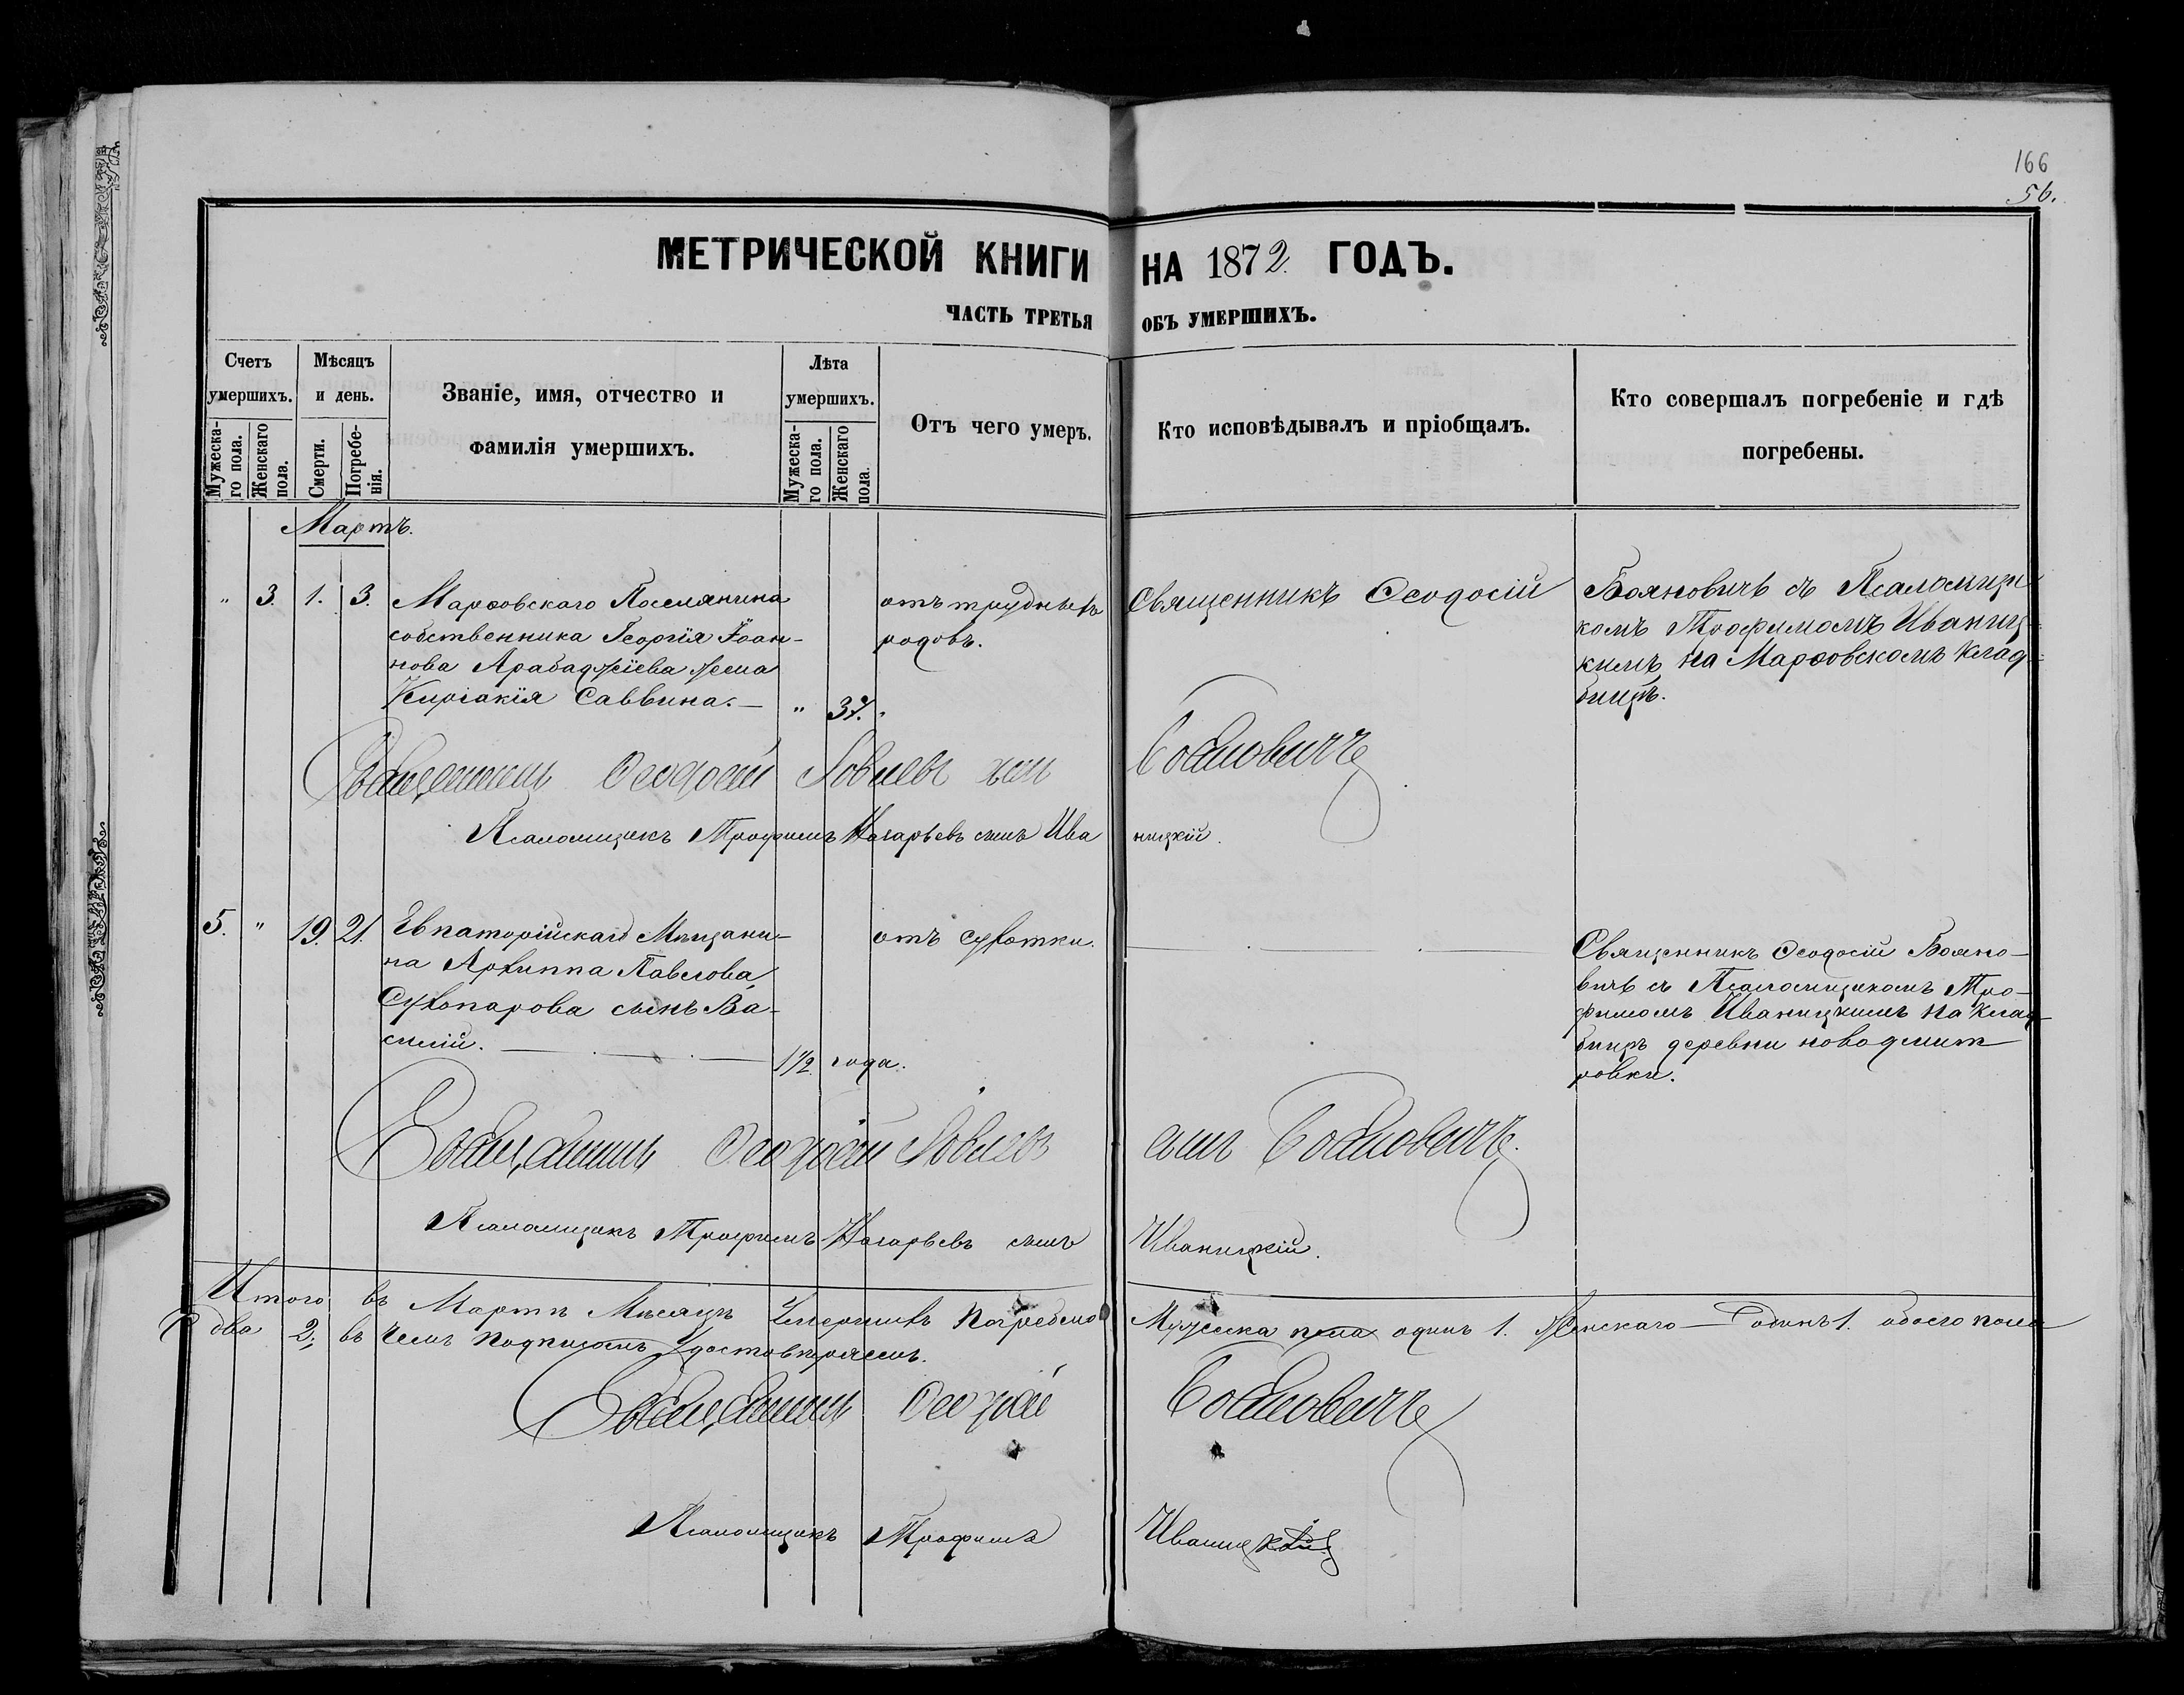 166
56.
МЕТРИЧЕСКОЙ КНИГИ НА 1872. ГОДЪ.
ЧАСТЬ ТРЕТЬЯ ОБЪ УМЕРШИХЪ.
Счетъ умершихъ.
Мужеска-го пола.
Женскаго пола.
Мѣсяцъ и день.
Смерти.
Погребе-нія.
Званіе, имя, отчество и
фамилія умершихъ.
Лѣта умершихъ.
Мужеска-го пола.
Женскаго пола.
Отъ чего умеръ.
Кто исповѣдывалъ и пріобщалъ.
Кто совершалъ погребеніе и гдѣ
погребены.
Мартъ.
" 3. 1. 3.
Марѳовскаго Поселянина
собственника Георгія Іоан-
нова Арабаджіева жена
Киріакія Саввина. — " 37.
отъ трудныхъ
родовъ.
Священникъ Ѳеодосій
Бояновичъ съ Псаломщи
комъ Трофимомъ Иваниц=
кимъ на Марѳовскомъ клад=
бищѣ.
Священникъ Ѳеодосій Іовлевъ сынъ Бояновичъ
Псаломщикъ Трофимъ Назарьевъ сынъ Ива ницкій.
5. " 19. 21.
Евпаторійскаго Мѣщани-
на Архиппа Павлова
Сухопарова сынъ Ва-
силій. — 1 1/2 года.
отъ сухотки.
Священникъ Ѳеодосій Бояно-
вичъ съ Псаломщикомъ Тро-
фимомъ Иваницкимъ на клад
бищѣ деревни новодмит
ровки.
Священникъ Ѳеодосій Іовлевъ сынъ Бояновичъ.
Псаломщикъ Трофимъ Назарьевъ сынъ Иваницкій.
Итого въ Мартѣ Мѣсяцѣ Умершихъ Погребено Мужеска пола одинъ 1. Женскаго — одинъ 1. обоего пола
два 2; въ чемъ подписомъ Удостовѣряемъ.
Священникъ Ѳеодосій Бояновичъ
Псаломщикъ Трофимъ Иваницкій